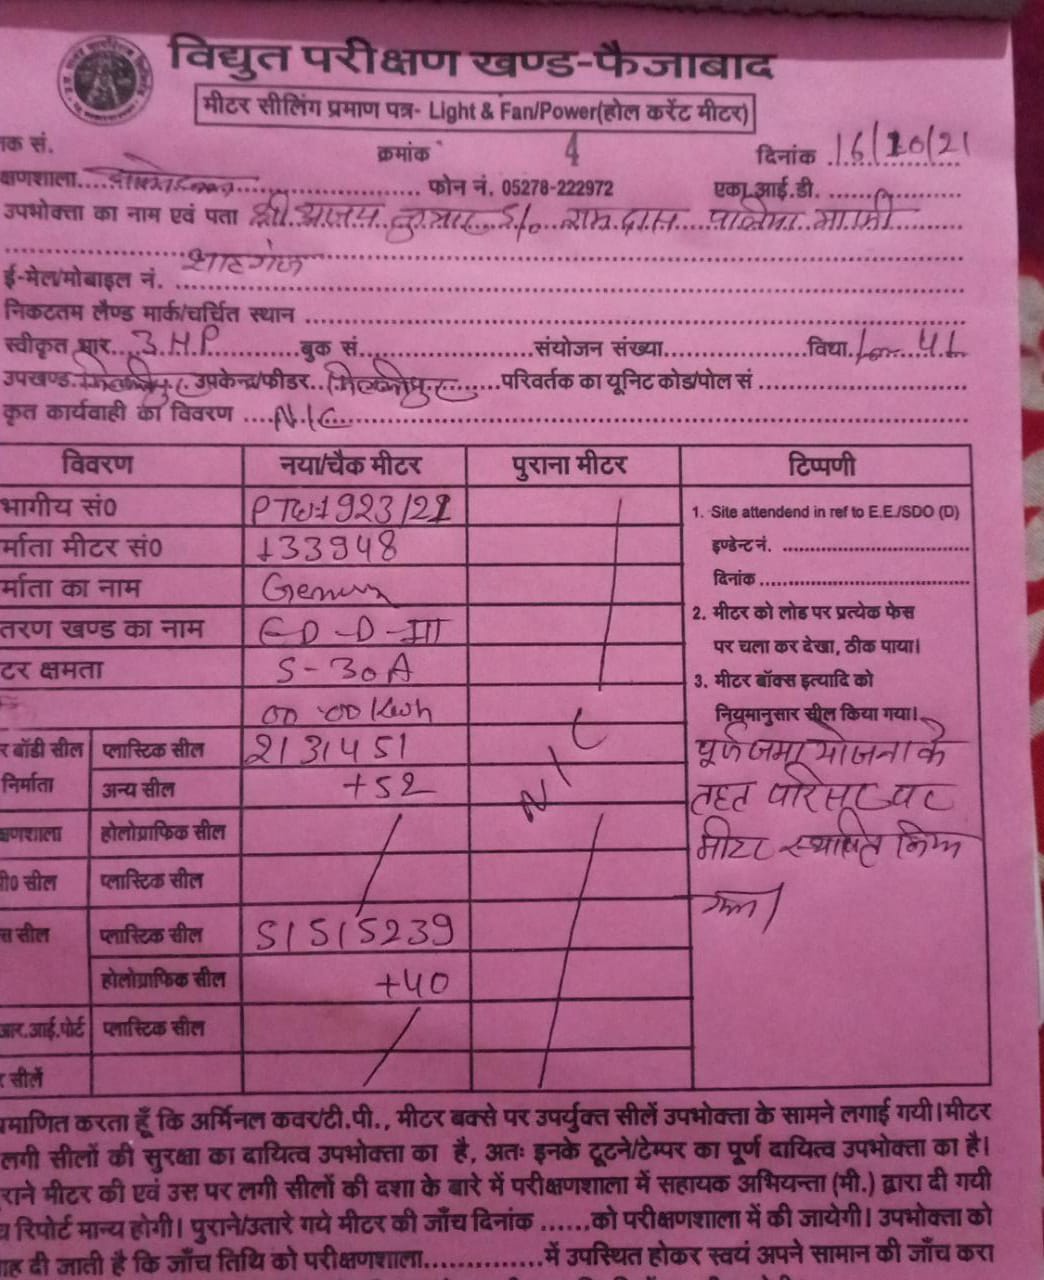 विद्युत परीक्षण खण्ड-फैजाबाद
मीटर सीलिंग प्रमाण पत्र- Light & Fan/Power(होल करेंट मीटर)
क सं. क्रमांक 4 दिनांक 16/10/21
क्षणशाला फोन नं. 05278-222972 एका.आई.डी.
उपभोक्ता का नाम एवं पता श्री अजय कुमार S/o राम दास माफी
शाहगंज
ई-मेल/मोबाइल नं.
निकटतम लैण्ड मार्क/चर्चित स्थान
स्वीकृत भार 3 H.P बुक सं. संयोजन संख्या विधा
उपखण्ड मिल्कीपुर उपकेन्द्र/फीडर मिल्कीपुर परिवर्तक का यूनिट कोड/पोल सं
कृत कार्यवाही का विवरण N/C
विवरण नया/चैक मीटर पुराना मीटर टिप्पणी
भागीय सं0 1. Site attendend in ref to E.E./SDO (D)
र्माता मीटर सं0 133948 इण्डेन्ट नं.
र्माता का नाम Genus दिनांक
तरण खण्ड का नाम 2. मीटर को लोड पर प्रत्येक फेस
पर चला कर देखा, ठीक पाया।
टर क्षमता 5-30A 3. मीटर बॉक्स इत्यादि को
00.00 Kwh नियमानुसार सील किया गया।
र बॉडी सील प्लास्टिक सील 2131451 पूर्ण जमा योजना के
निर्माता अन्य सील +52 N/C तहत परिसर पर
क्षणशाला होलोग्राफिक सील मीटर स्थापित किया
पी0 सील प्लास्टिक सील गया।
स सील प्लास्टिक सील 51515239
होलोग्राफिक सील +40
आर.आई.पोर्ट प्लास्टिक सील
र सीलें
माणित करता हूँ कि अर्मिनल कवर/टी.पी., मीटर बक्से पर उपर्युक्त सीलें उपभोक्ता के सामने लगाई गयी। मीटर
लगी सीलों की सुरक्षा का दायित्व उपभोक्ता का है, अतः इनके टूटने/टेम्पर का पूर्ण दायित्व उपभोक्ता का है।
राने मीटर की एवं उस पर लगी सीलों की दशा के बारे में परीक्षणशाला में सहायक अभियन्ता (मी.) द्वारा दी गयी
रिपोर्ट मान्य होगी। पुराने/उतारे गये मीटर की जाँच दिनांक ......को परीक्षणशाला में की जायेगी। उपभोक्ता को
ाह दी जाती है कि जाँच तिथि को परीक्षणशाला..............में उपस्थित होकर स्वयं अपने सामान की जाँच करा